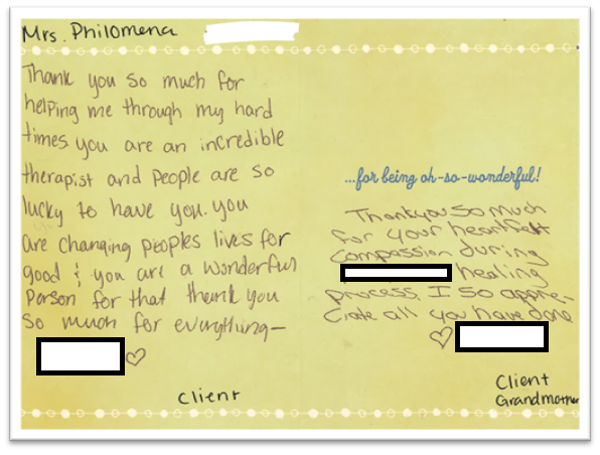 Mrs. Philomena
Thank you so much for
helping me through my hard
times you are an incredible
therapist and people are so
lucky to have you. you
are changing peoples lives for
good & you are a wonderful
person for that thank you
so much for everything—
♡
Client
...for being oh-so-wonderful!
Thankyou so much
for your heartfelt
compassion during
healing
process. I so appre-
ciate all you have done
♡
Client
Grandmother